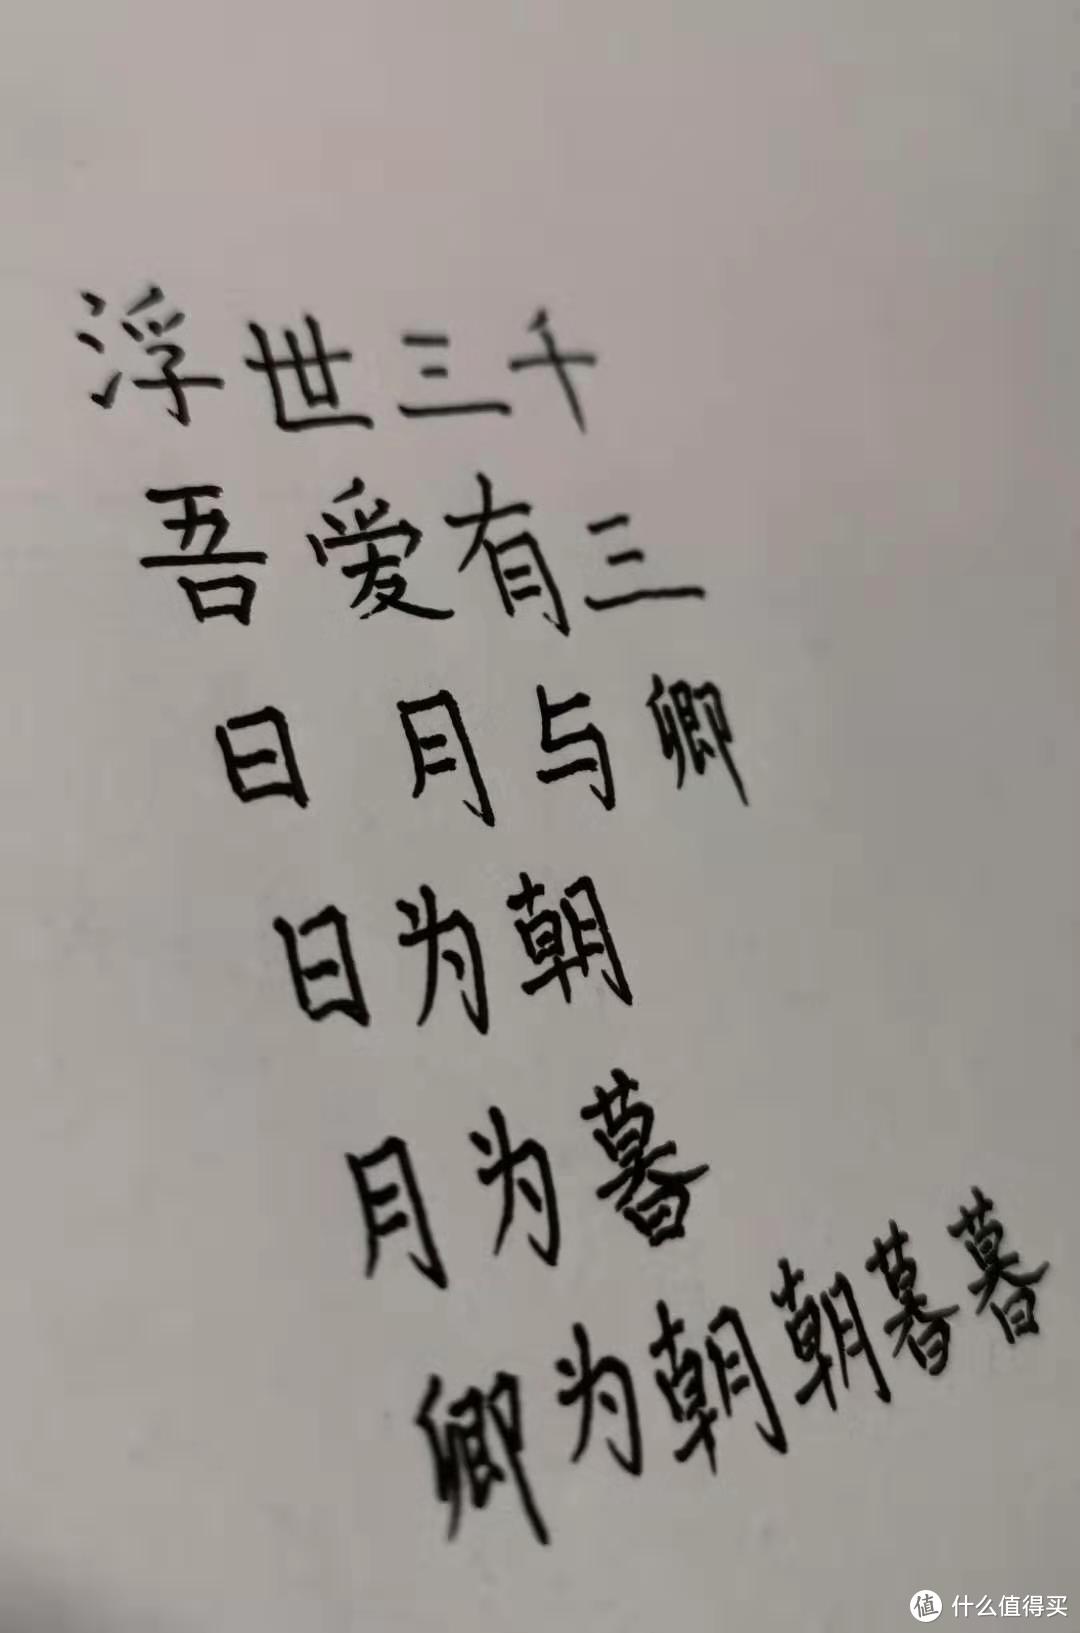 浮世三千
吾爱有三
日月与卿
日为朝
月为暮
卿为朝朝暮暮
值 什么值得买